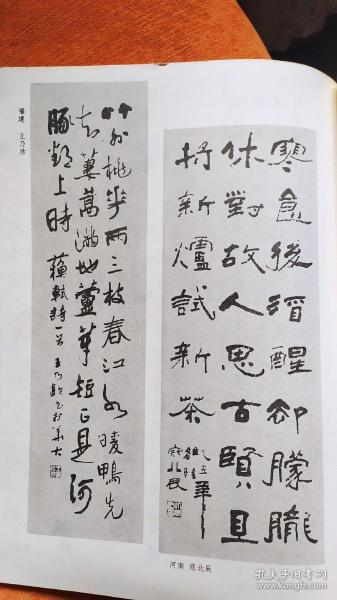 寒食後酒醒却朦朧
休對故人思古賢且
將新爐試新茶
乙丑年
寇北辰
河南 寇北辰
福建 王乃
竹外桃華兩三枝春江水暖鴨先
知蔞蒿滿地蘆芽短正是河
豚欲上時 蘇軾詩一首 王乃欽書於華大
孔夫子旧书网